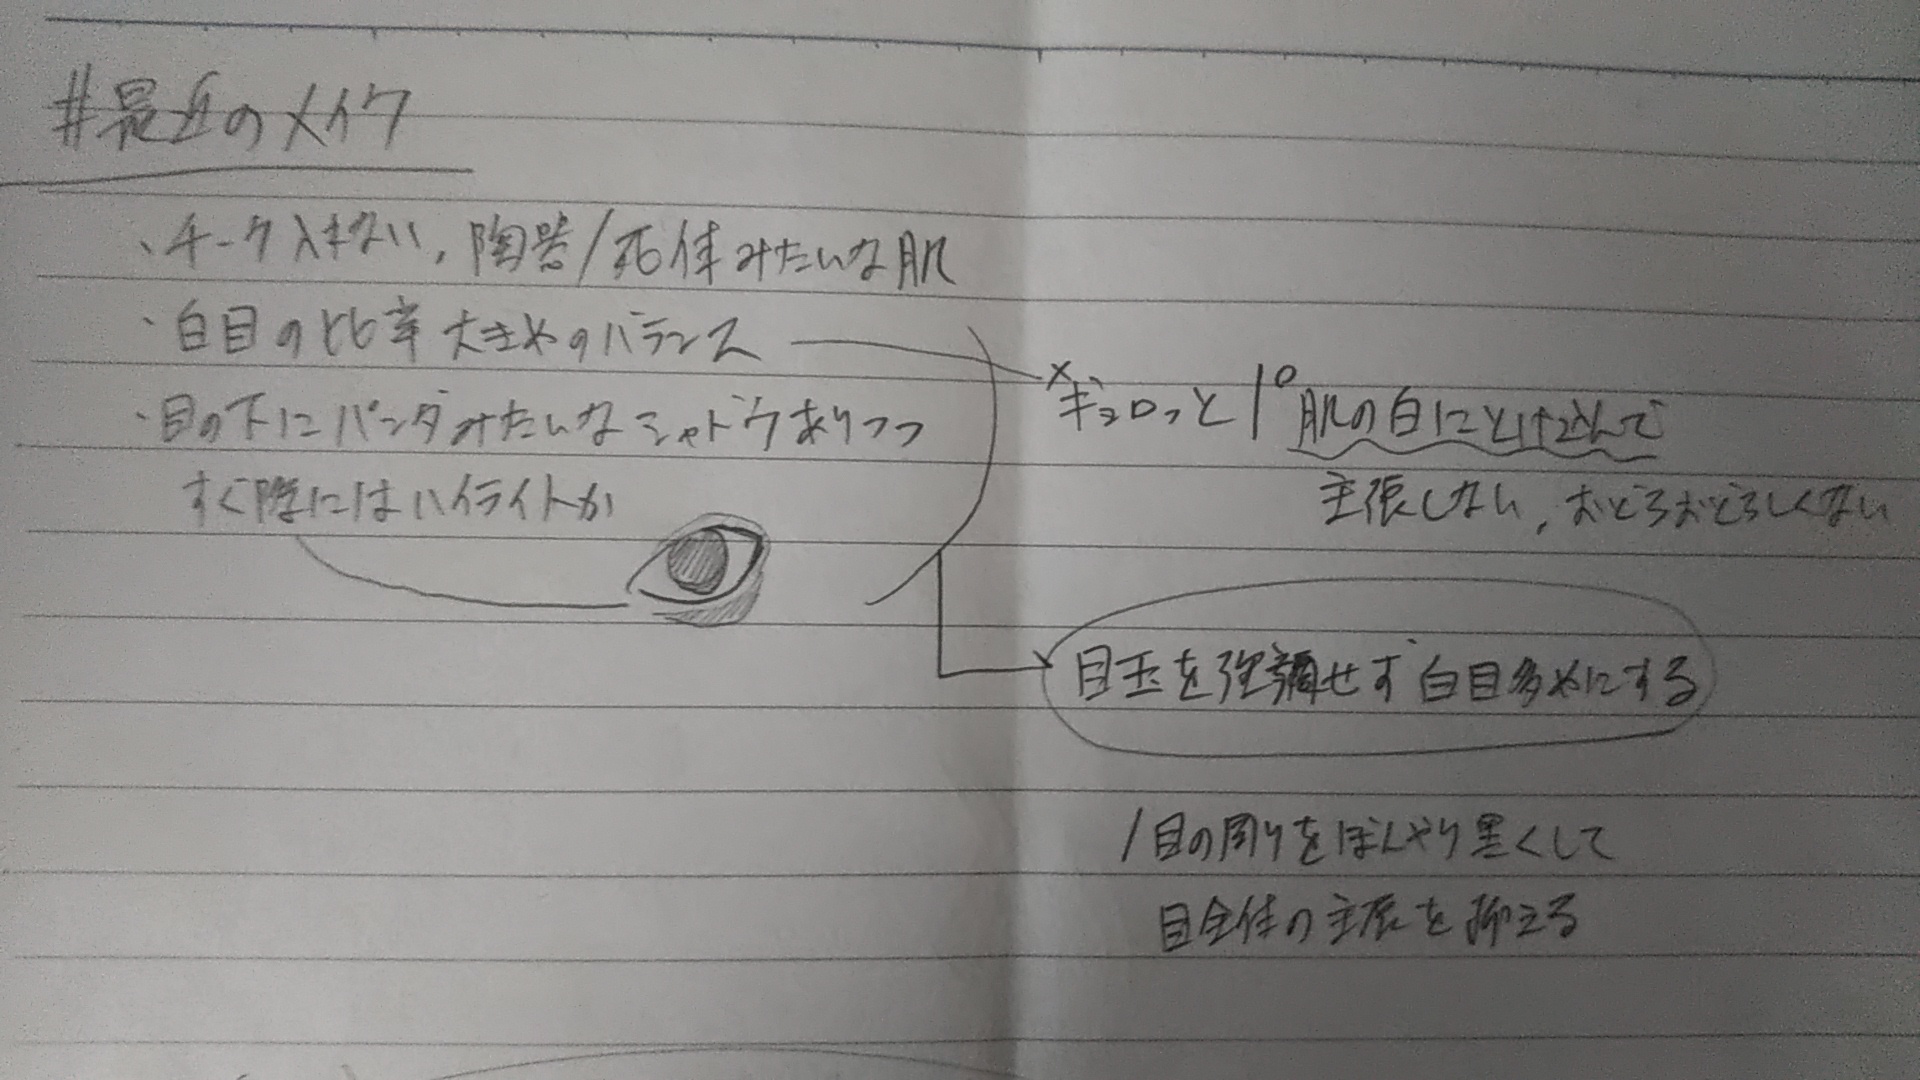 #最近のメイク
・チーク入れない,陶器/死体みたいな肌
・白目の比率大きめのバランス
・目の下にパンダみたいなシャドウありつつ
すぐ際にはハイライトが
×ギョロッと/○肌の白にとけ込んで
主張しない,おどろおどろしくない
目玉を強調せず白目多めにする
/目の周りをぼんやり黒くして
目全体の主張を抑える